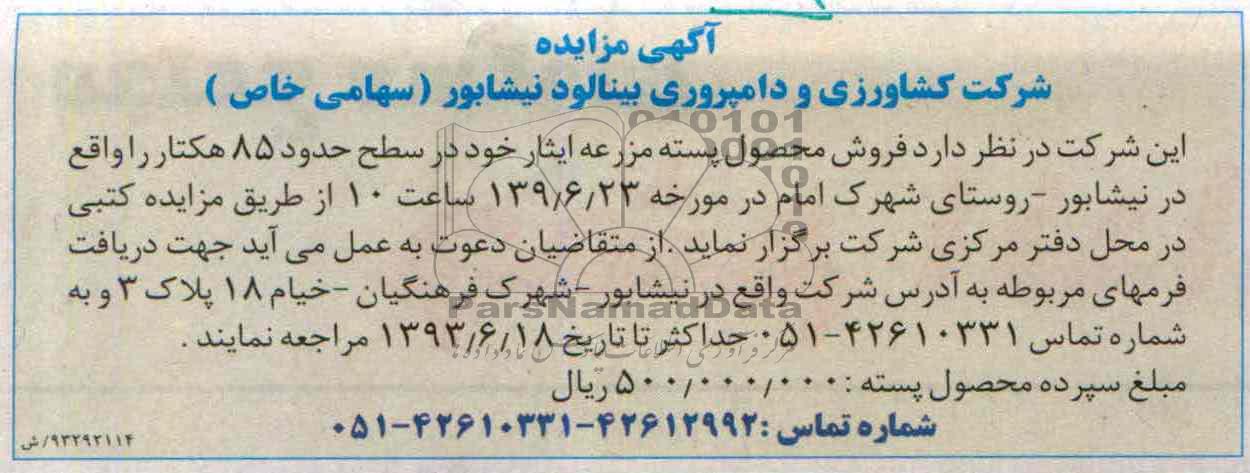 آگهی مزایده
شرکت کشاورزی و دامپروری بینالود نیشابور (سهامی خاص )
این شرکت در نظر دارد فروش محصول پسته مزرعه ایثار خود در سطح حدود ۸۵ هکتار را واقع
در نیشابور -روستای شهرک امام در مورخه ۱۳۹/۶/۲۳ ساعت ۱۰ از طریق مزایده کتبی
در محل دفتر مرکزی شرکت برگزار نماید .از متقاضیان دعوت به عمل می آید جهت دریافت
فرمهای مربوطه به آدرس شرکت واقع در نیشابور -شهرک فرهنگیان -خیام ۱۸ پلاک ۳ و به
شماره تماس ۴۲۶۱۰۳۳۱-۰۵۱ حداکثر تا تاریخ ۱۳۹۳/۶/۱۸ مراجعه نمایند .
مبلغ سپرده محصول پسته : ۵۰۰/۰۰۰/۰۰۰ ریال
شماره تماس :۴۲۶۱۲۹۹۲-۴۲۶۱۰۳۳۱-۰۵۱
۹۳۲۹۲۱۱۴/ش
ParsNamadData